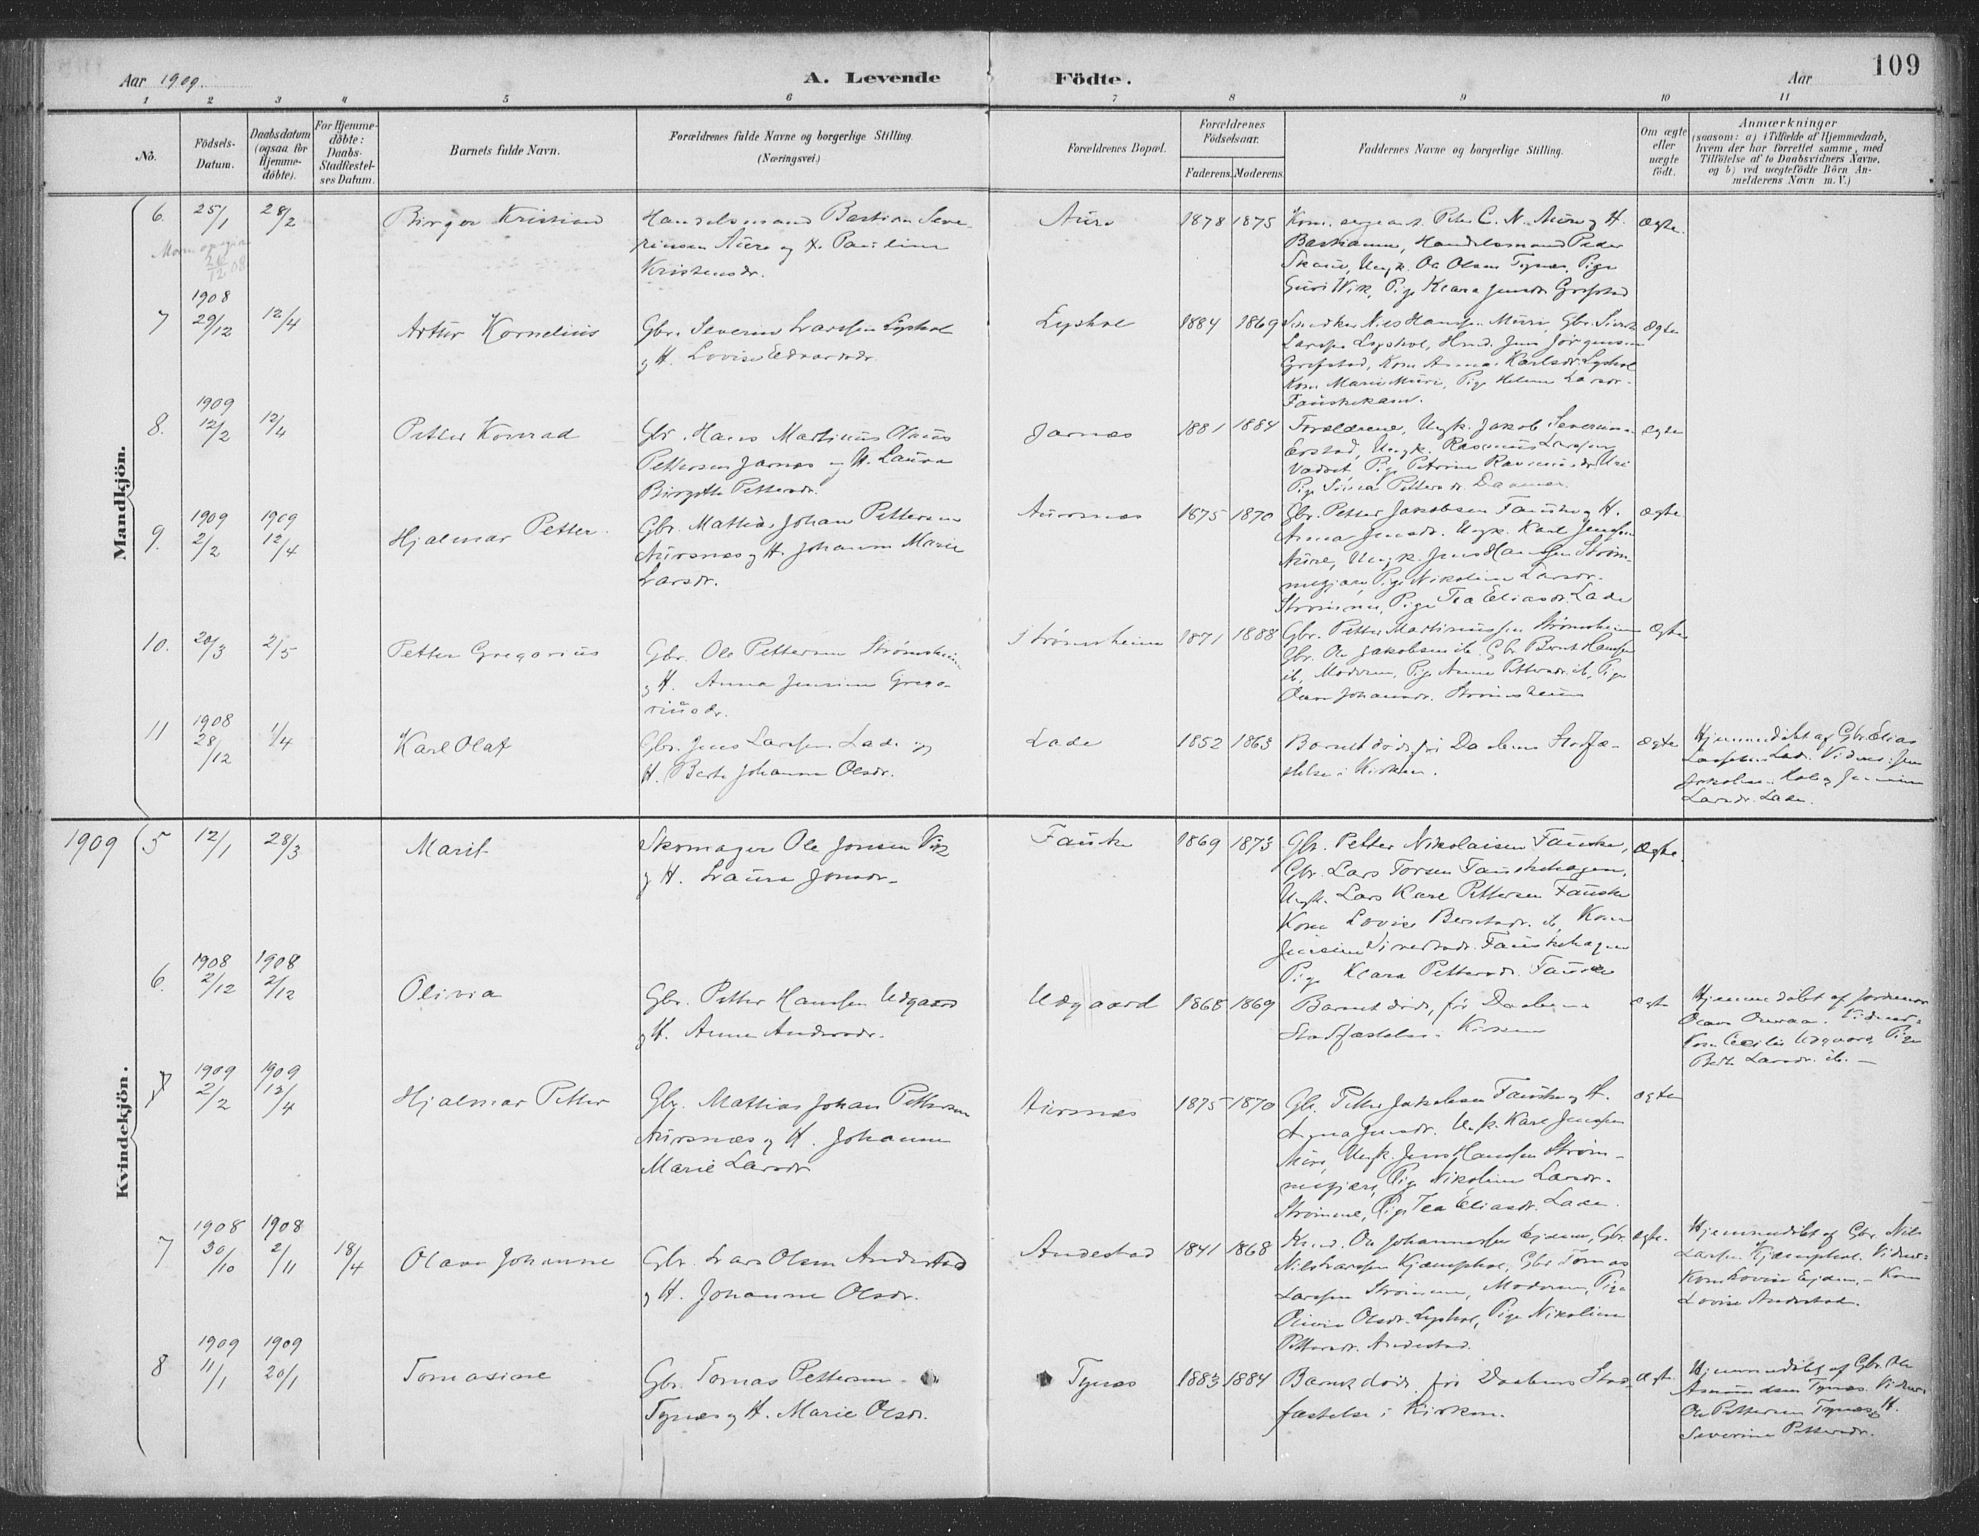 109
Aar 1909. A. Levende Födte. Aar
1 2 3 4 5 6 7 8 9 10 11
No.
Födsels-
Datum.
Daabsdatum
(ogsaa for
Hjemme-
döbte).
For Hjemme-
döbte:
Daabs-
Stadfæstel-
ses Datum.
Barnets fulde Navn.
Forældrenes fulde Navne og borgerlige Stilling.
(Næringsvei.)
Forældrenes Bopæl.
Forældrenes
Födselsaar.
Faderens. Moderens.
Faddernes Navne og borgerlige Stilling.
Om ægte
eller
uægte
födt.
Anmærkninger
(saasom: a) i Tilfælde af Hjemmedaab,
hvem der har forrettet samme, med
Tilföielse af to Daabsvidners Navne,
og b) ved uægtefödte Börn An-
melderens Navn m. V.)
Mandkjön.
6. 25/1 28/2 Birger Kristian
Handelsmand Bastian Seve-
rinsen Aure og H. Pauline
Kristensdr.
Aure 1878 1875
Peter C. N. Aure og H.
Bastianne, Handelsmand Peder
Ungk. Ole Olsen Tynes, Pige
Guri Wik, Pige Klara Jensdr. Grefstad
Ægte.
26/12 08
7 1908 29/12 12/4 Artur Kornelius
Gbr. Severin Larssen Lyshol
og H. Lovise Edvardsdr.
Lyshol 1884 1869
Snedker Nils Hanssen Muri, Gbr. Sivert
Larssen Lyshol, Hmd. Jens Jørgensen
Grefstad, Kone Anna Karlsdr. Lyshol
Kone Marie Muri, Pige Helene Larsdr.
Ægte
8. 1909 12/2 12/4 Petter Konrad
Gbr. Hans Martinus Olaus
Pettersen Jarnes og H. Laura
Birgitte Pettersdr.
Jarnes 1881 1884
Forældrene, Ungk. Jakob Severins.
Ungk. Rasmus Larssen
Pige Petrine Rasmusdr.
Pige Sina Pettersdr.
ægte
9. 1909 2/2 1909 12/4 Hjalmar Petter.
Gbr. Mattias Johan Pettersen
Aursnes og H. Johanne Marie
Larsdr.
Aursnes 1875 1870
Gbr. Petter Jakobsen Fauske og H.
Anna Jensdr. Ungk. Karl Jenssen
Aure, Ungk. Jens Hanssen Strøm-
megjære, Pige Nikoline Larsdr.
Strømme, Pige Tea Eliasdr. Lade
ægte
10. 20/3 2/5 Petter Gregorius
Gbr. Ole Pettersen Strømsheim
og H. Anna Jensine Grego-
riusdr.
Strømsheim 1871 1888
Gbr. Petter Martinussen Strømsheim
Gbr. Ole Jakobsen ib. Gbr Bernt Hanssen
ib, Moderen, Pige Anne Pettersdr ib, Pige
Olave Johansdr. Strømsheim
Ægte
11 1908 28/12 1/4 Karl Olaf
Gbr. Jens Larssen Lade og
H. Berte Johanne Olsdr.
Lade 1852 1863
Barnet døde før Daabens Stadfæ-
stelse i Kirken.
ægte
Hjemmedøbt af Gbr. Elias
Larssen Lade. Vidner: Jens
Larsdr. Lade.
Kvindekjön.
1909 5 12/1 28/3 Marit
Skomager Ole Jonsen Vik
og H. Laura Jonsdr.
Fauske 1869 1873
Gbr. Petter Nikolaisen Fauske,
Gbr. Lars Torsen Fauskehagen,
Ungk. Lars Karl Pettersen Fauske
Kone Lovise Berntsdr. ib, Kone
Jensine Sivertsdr. Fauskehagen
Pige Klara Pettersdr. Fauske
Ægte.
6. 1908 2/12 1908 2/12 Olivia
Gbr. Petter Hanssen Udgaard
og H. Anne Andersdr.
Udgaard 1868 1869
Barnet døde, før Daabens
Stadfæstelse i Kirken
ægte
Hjemmedøbt af Jordemor
Olave Overaa. Vidner:
Kone Cecilie Udgaard, Pige
Berte Larsdr. ib. —
7 1909 2/2 1909 12/4 Hjalmar Petter
Gbr. Mattias Johan Pettersen
Aursnes og H. Johanne
Marie Larsdr
Aursnes 1875 1870
Gbr. Petter Jakobsen Fauske og H.
Anna Jensdr. Ungk. Karl Jenssen
Aure, Ungk. Jens Hanssen Strøm-
megjære, Pige Nikoline Larsdr.
Strømme, Pige Tea Eliasdr. Lade.
ægte
7 1908 30/10 1908 2/11 18/4 Olava Johanne
Gbr. Lars Olsen Andestad
og H. Johanne Olsdr.
Andestad 1841 1868
Hmd. Ole Johannessen Ejdem, Gbr.
Nils Larssen Kjæmphol, Gbr Tomas
Larssen Strømme, Moderen, Pige
Olivia Olsdr. Lyshol, Pige Nikoline
Pettersdr. Andestad.
ægte.
Hjemmedøbt af Gbr. Nils
Larssen Kjæmphol. Vidner:
Kone Lovise Ejdem, – Kone
Lovise Andestad.
8 1909 11/1 1909 20/1 Tomasine
Gbr. Tomas Pettersen
Tynes og H. Marie Olsdr.
Tynes 1883 1884
Barnet døde før Daabens Stad-
fæstelse i Kirken.
ægte
Hjemmedøbt af Gbr. Ole
Asmundsen Tynes. Vidner:
Ole Pettersen Tynes og H.
Severine Pettersdr.